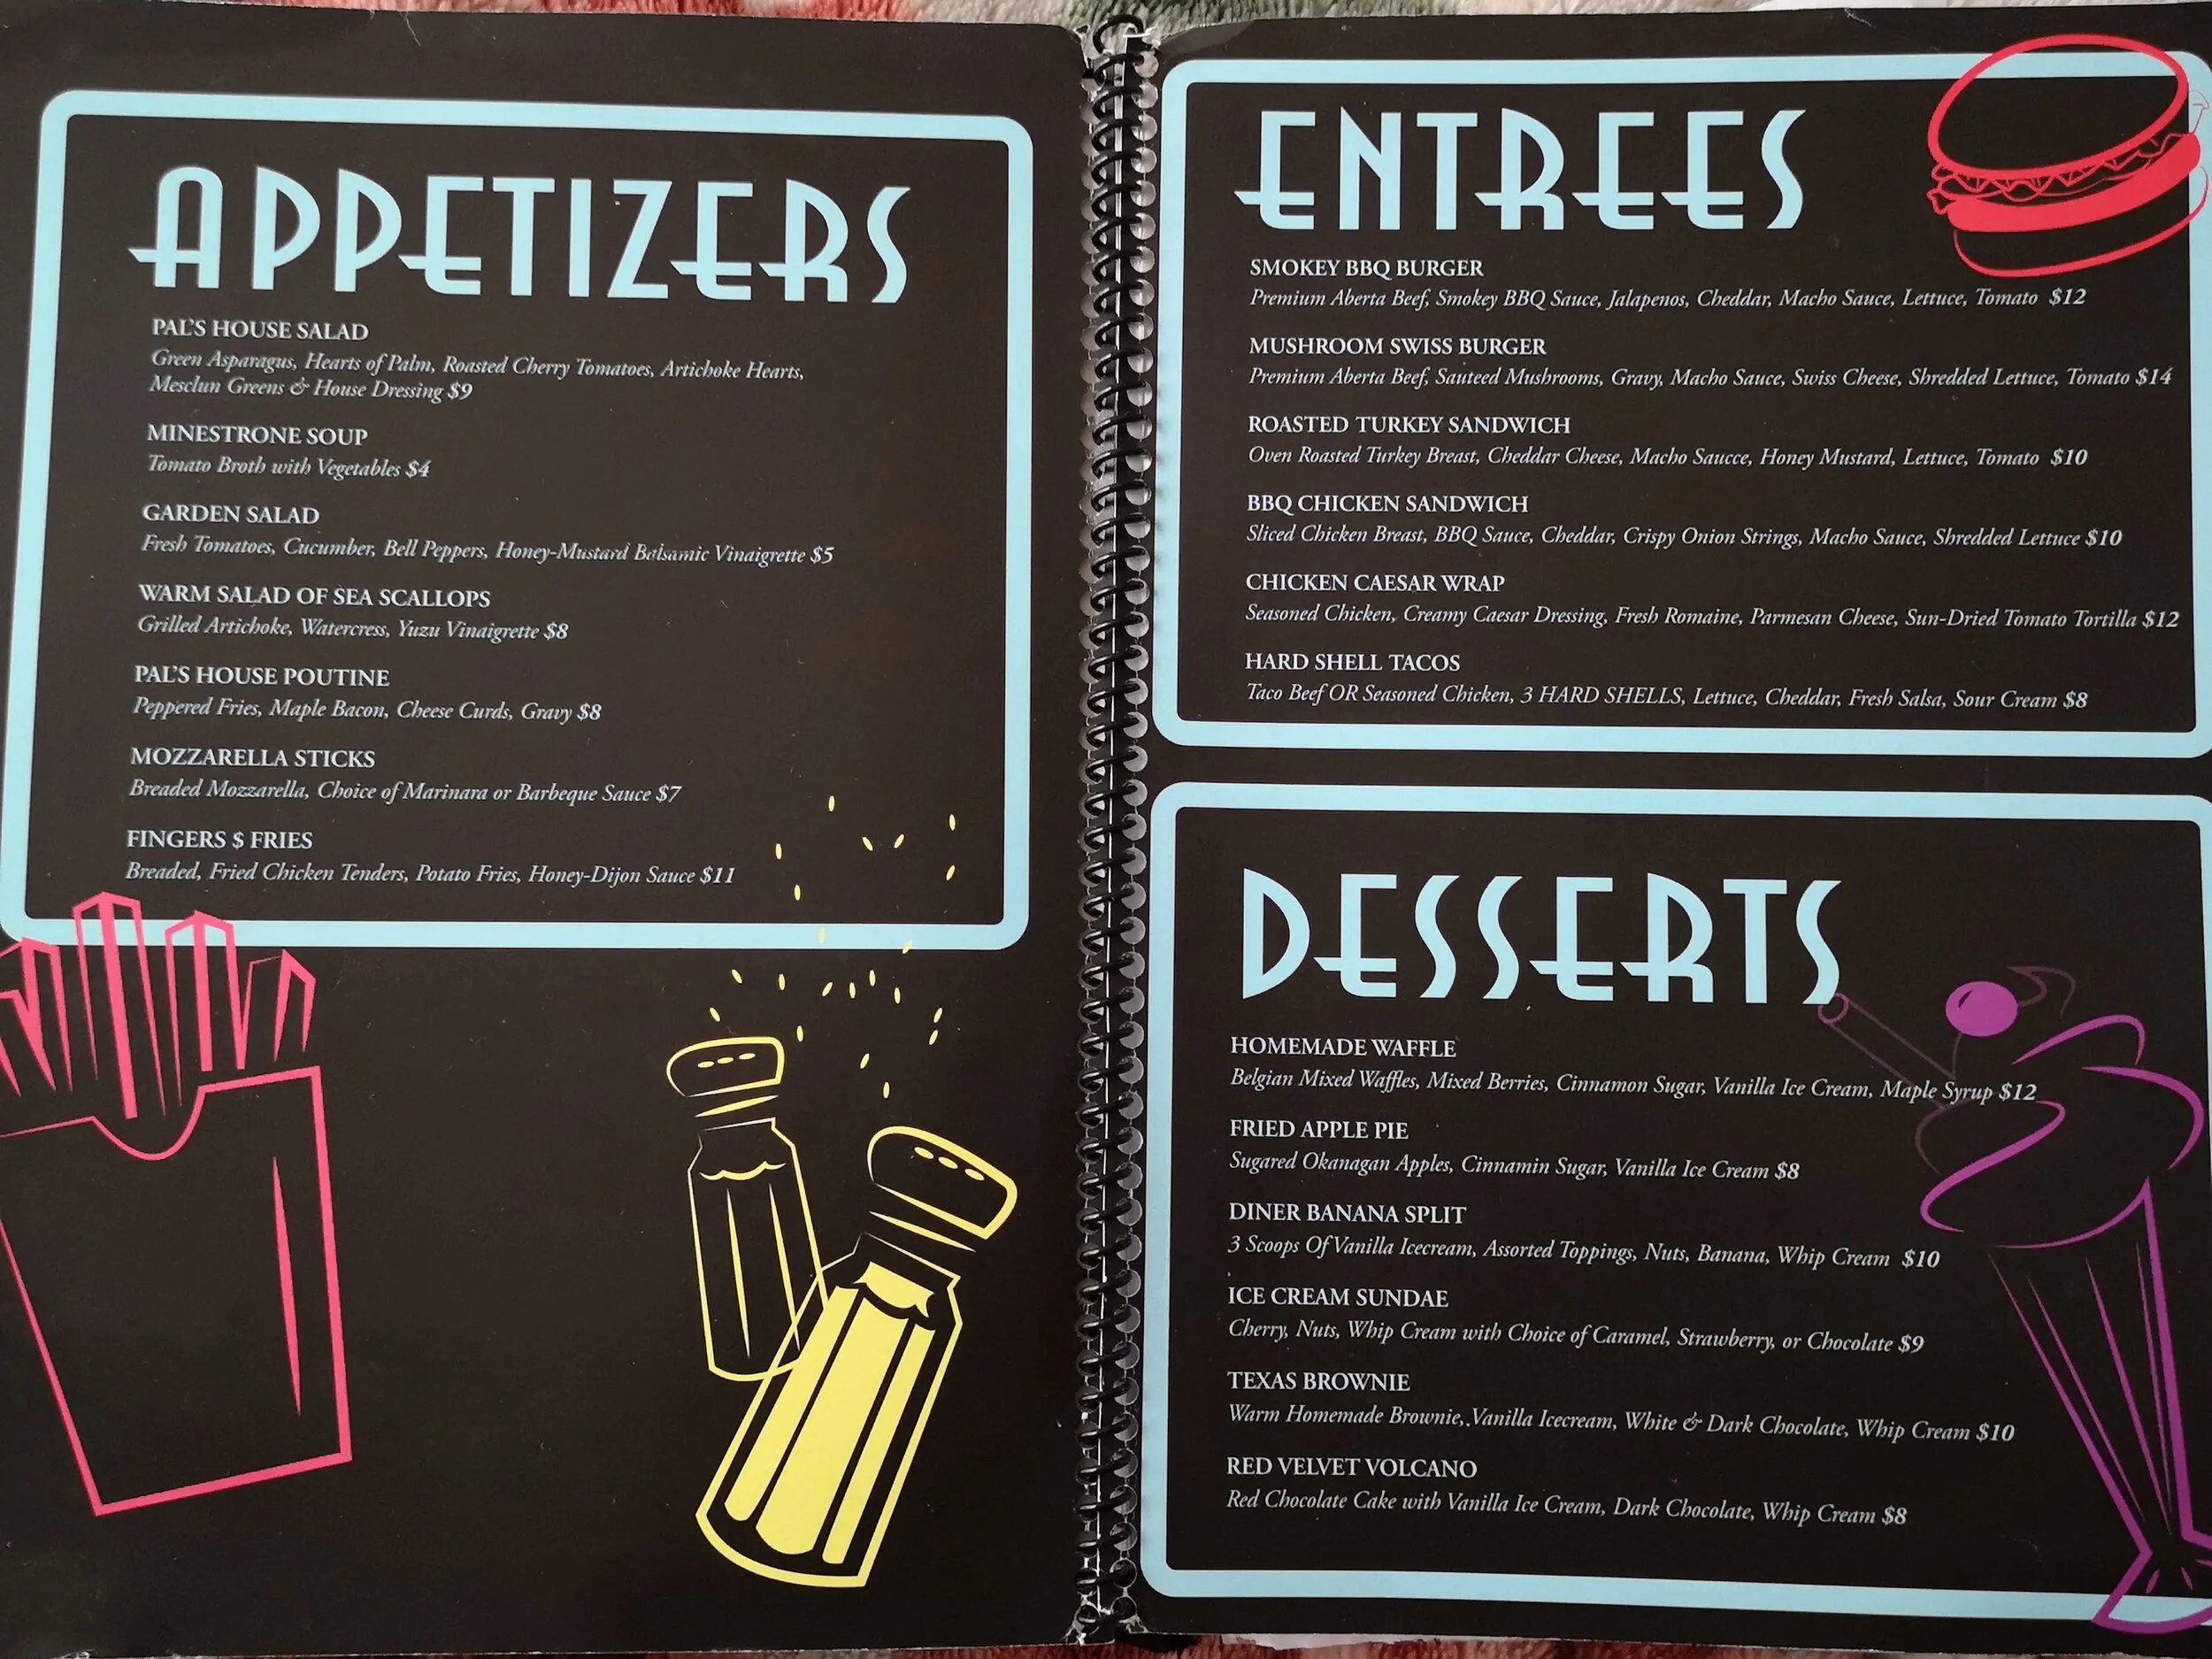 APPETIZERS
PAL'S HOUSE SALAD
Green Asparagus, Hearts of Palm, Roasted Cherry Tomatoes, Artichoke Hearts,
Mesclun Greens & House Dressing $9
MINESTRONE SOUP
Tomato Broth with Vegetables $4
GARDEN SALAD
Fresh Tomatoes, Cucumber, Bell Peppers, Honey-Mustard Balsamic Vinaigrette $5
WARM SALAD OF SEA SCALLOPS
Grilled Artichoke, Watercress, Yuzu Vinaigrette $8
PAL'S HOUSE POUTINE
Peppered Fries, Maple Bacon, Cheese Curds, Gravy $8
MOZZARELLA STICKS
Breaded Mozzarella, Choice of Marinara or Barbeque Sauce $7
FINGERS $ FRIES
Breaded, Fried Chicken Tenders, Potato Fries, Honey-Dijon Sauce $11
ENTREES
SMOKEY BBQ BURGER
Premium Aberta Beef, Smokey BBQ Sauce, Jalapenos, Cheddar, Macho Sauce, Lettuce, Tomato $12
MUSHROOM SWISS BURGER
Premium Aberta Beef, Sauteed Mushrooms, Gravy, Macho Sauce, Swiss Cheese, Shredded Lettuce, Tomato $14
ROASTED TURKEY SANDWICH
Oven Roasted Turkey Breast, Cheddar Cheese, Macho Saucce, Honey Mustard, Lettuce, Tomato $10
BBQ CHICKEN SANDWICH
Sliced Chicken Breast, BBQ Sauce, Cheddar, Crispy Onion Strings, Macho Sauce, Shredded Lettuce $10
CHICKEN CAESAR WRAP
Seasoned Chicken, Creamy Caesar Dressing, Fresh Romaine, Parmesan Cheese, Sun-Dried Tomato Tortilla $12
HARD SHELL TACOS
Taco Beef OR Seasoned Chicken, 3 HARD SHELLS, Lettuce, Cheddar, Fresh Salsa, Sour Cream $8
DESSERTS
HOMEMADE WAFFLE
Belgian Mixed Waffles, Mixed Berries, Cinnamon Sugar, Vanilla Ice Cream, Maple Syrup $12
FRIED APPLE PIE
Sugared Okanagan Apples, Cinnamin Sugar, Vanilla Ice Cream $8
DINER BANANA SPLIT
3 Scoops Of Vanilla Icecream, Assorted Toppings, Nuts, Banana, Whip Cream $10
ICE CREAM SUNDAE
Cherry, Nuts, Whip Cream with Choice of Caramel, Strawberry, or Chocolate $9
TEXAS BROWNIE
Warm Homemade Brownie, Vanilla Icecream, White & Dark Chocolate, Whip Cream $10
RED VELVET VOLCANO
Red Chocolate Cake with Vanilla Ice Cream, Dark Chocolate, Whip Cream $8